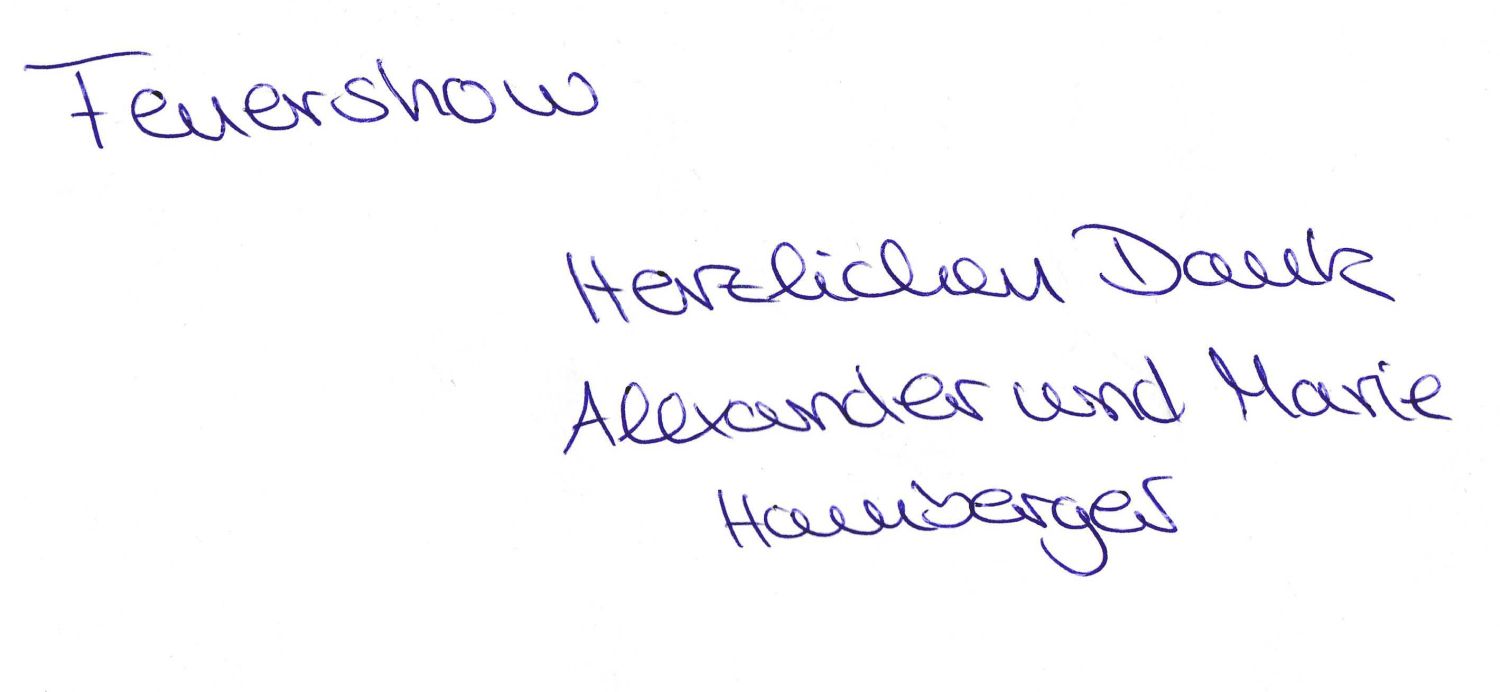 Feuershow
Herzlichen Dank
Alexander und Marie
Hamberger